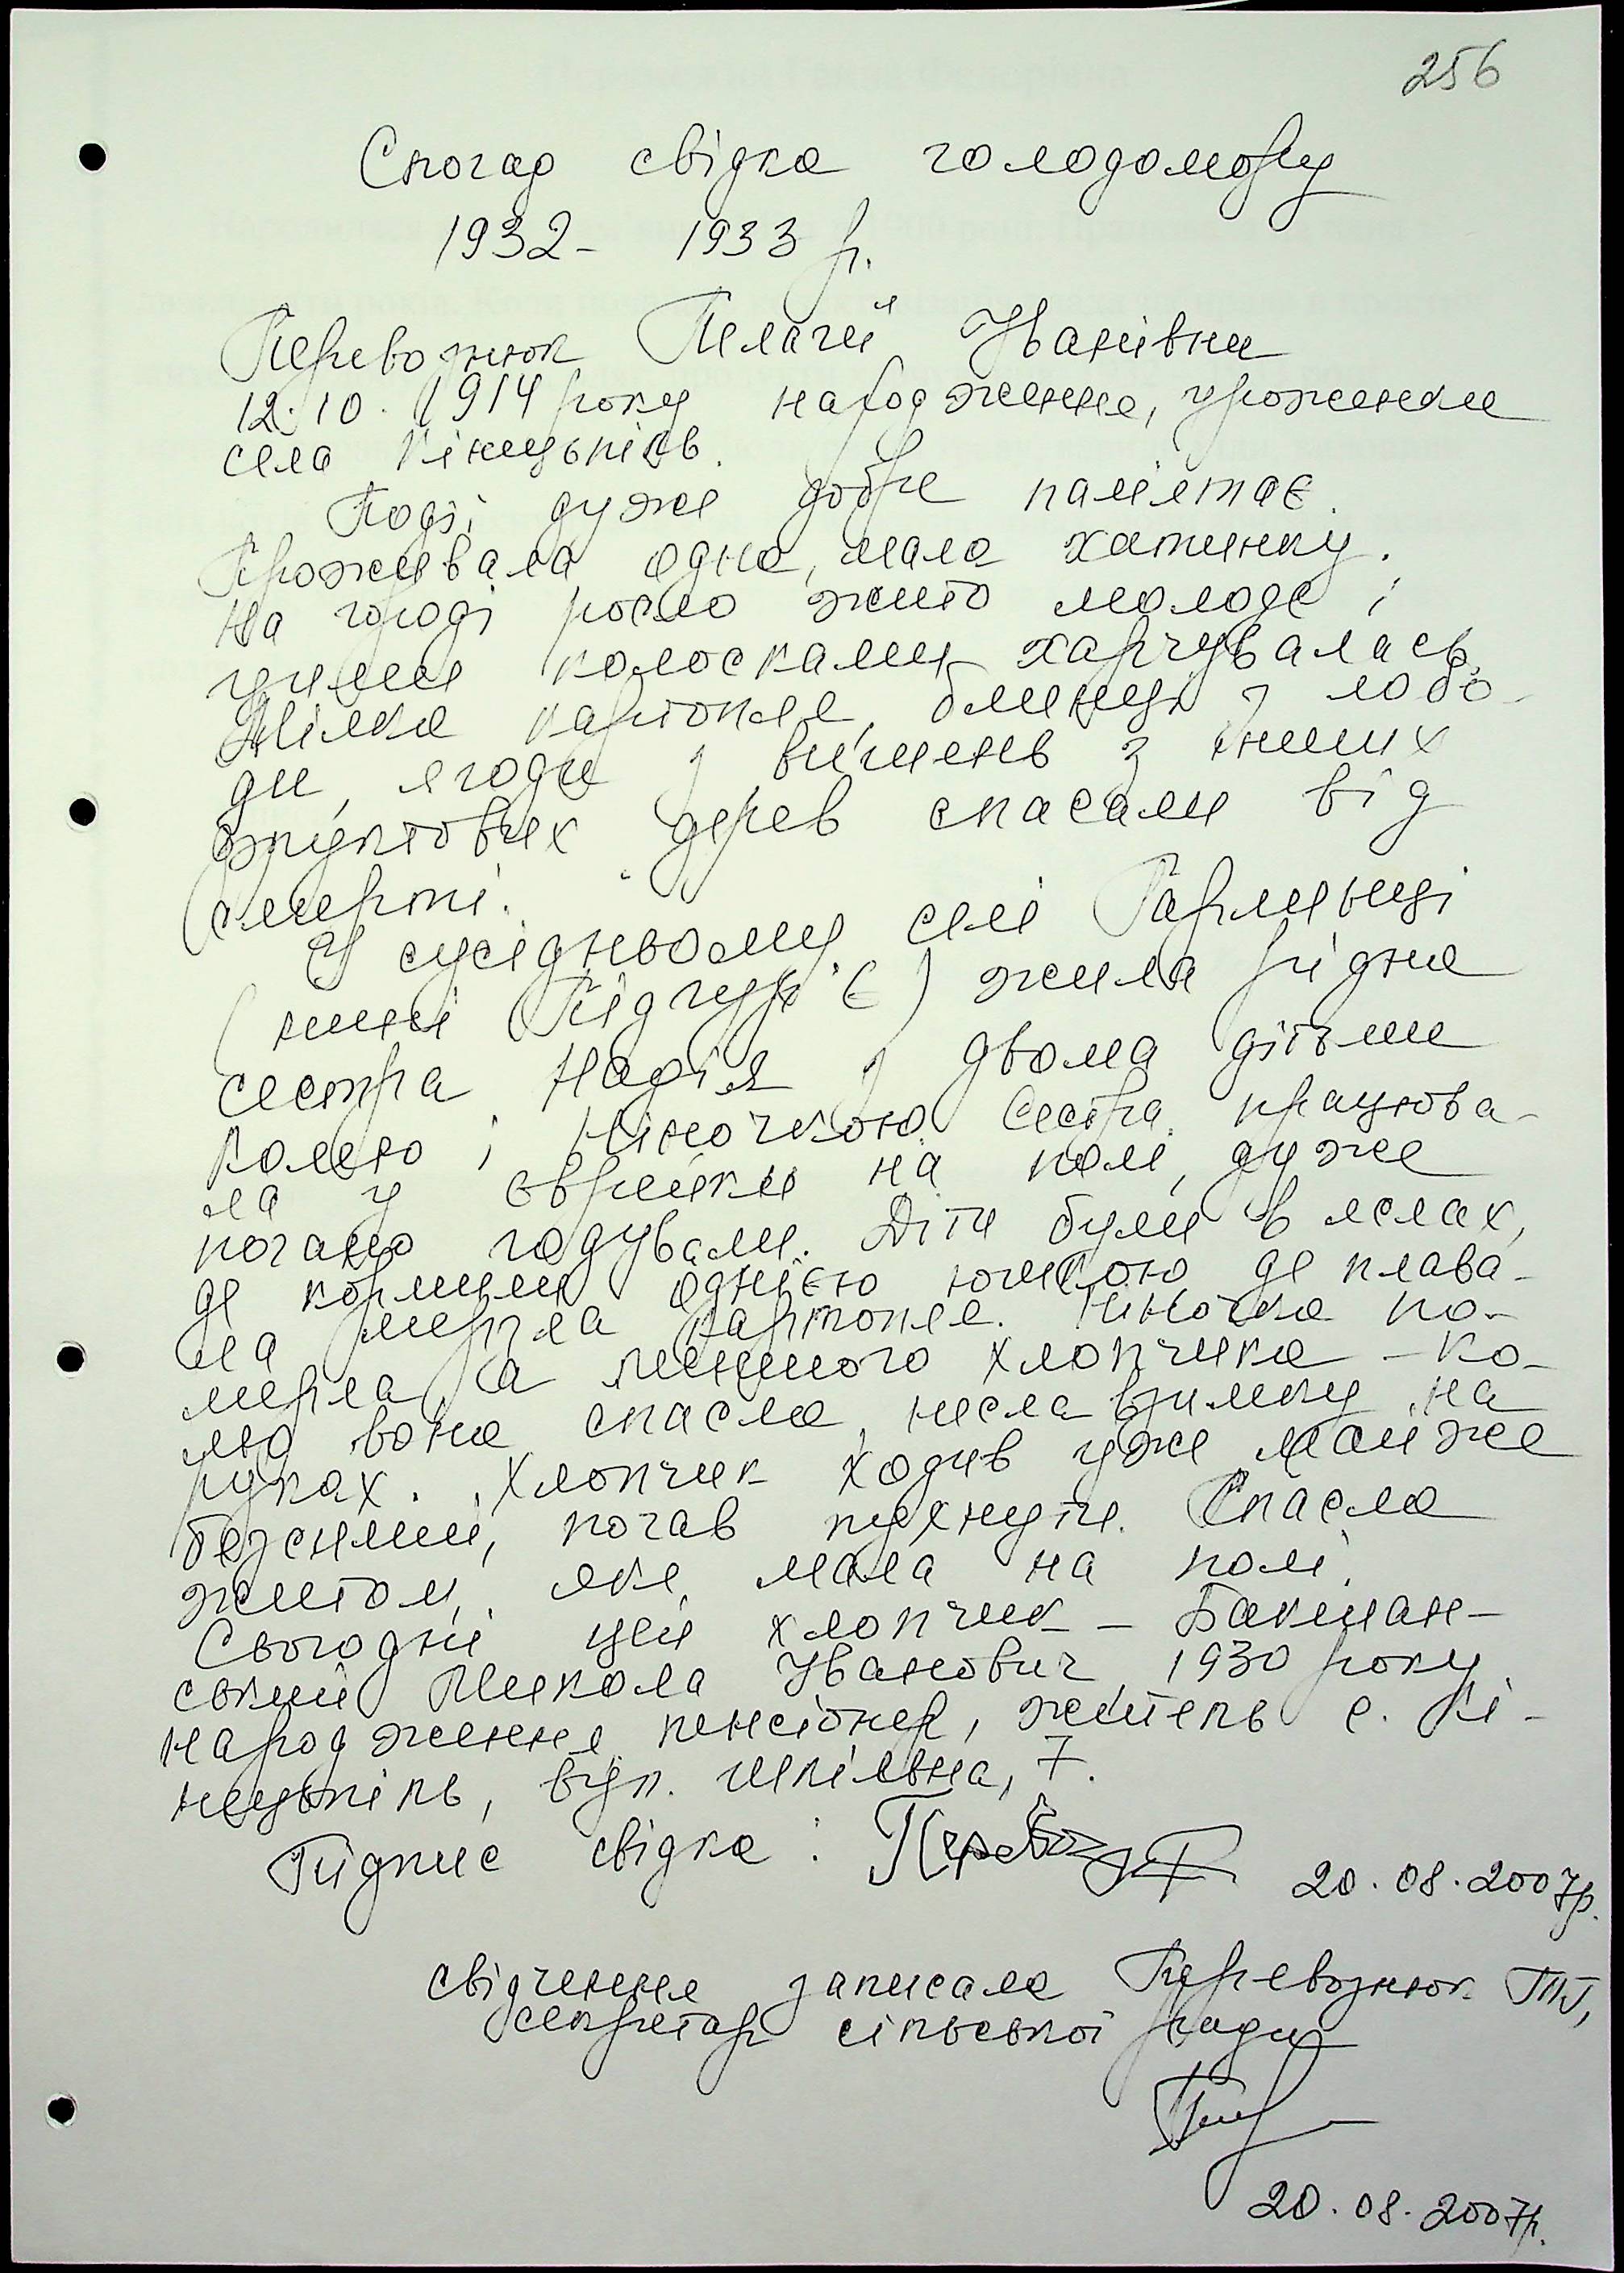 256
Спогад свідка голодомору
1932- 1933 р.
Перевознюк Пелагеї Іванівни
12.10.1914 року народження, уроженки
села Кінецьпіль.
Події дуже добре памятає.
Проживала одна, мала хатинку.
На городі росло жито молоде і
цими колосками харчувалась.
Мілка картопля, блинці з лобо-
ди, ягоди з вишень з інших
фруктових дерев спасали від
смерті.
У сусідньому селі Гармынці
(нині Підгур'є) жила рідна
сестра Надія з двома дітьми
Колею і Ніночкою. Сестра працюва-
ла у єврейки на полі, дуже
погано годували. Діти були в яслах,
де кормили однією юшкою де плава-
ла мерзла картопля. Ніночка по-
мерла, а меншого хлопчика - Ко-
лю вона спасла, несла взимку на
руках. Хлопчик ходив уже майже
безсилий, почав пухнути. Спасла
житом, яке мала на полі.
Сьогодні цей хлопчик - Бакшан-
ський Микола Іванович, 1930 року
народження пенсіонер, житель с. Кі-
нецьпіль, вул. Шкільна, 7.
Підпис свідка: 20.08.2007р.
свідчення записала Перевознюк
секретар сільської ради
20.08.2007р.